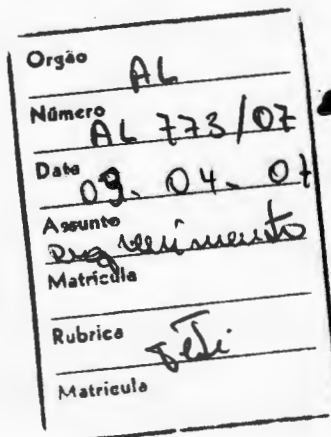 Orgão
AL
Número
AL 773/07
Data
09.04.07
Assunto
requerimento
Matrícula
Rubrica
Matrícula